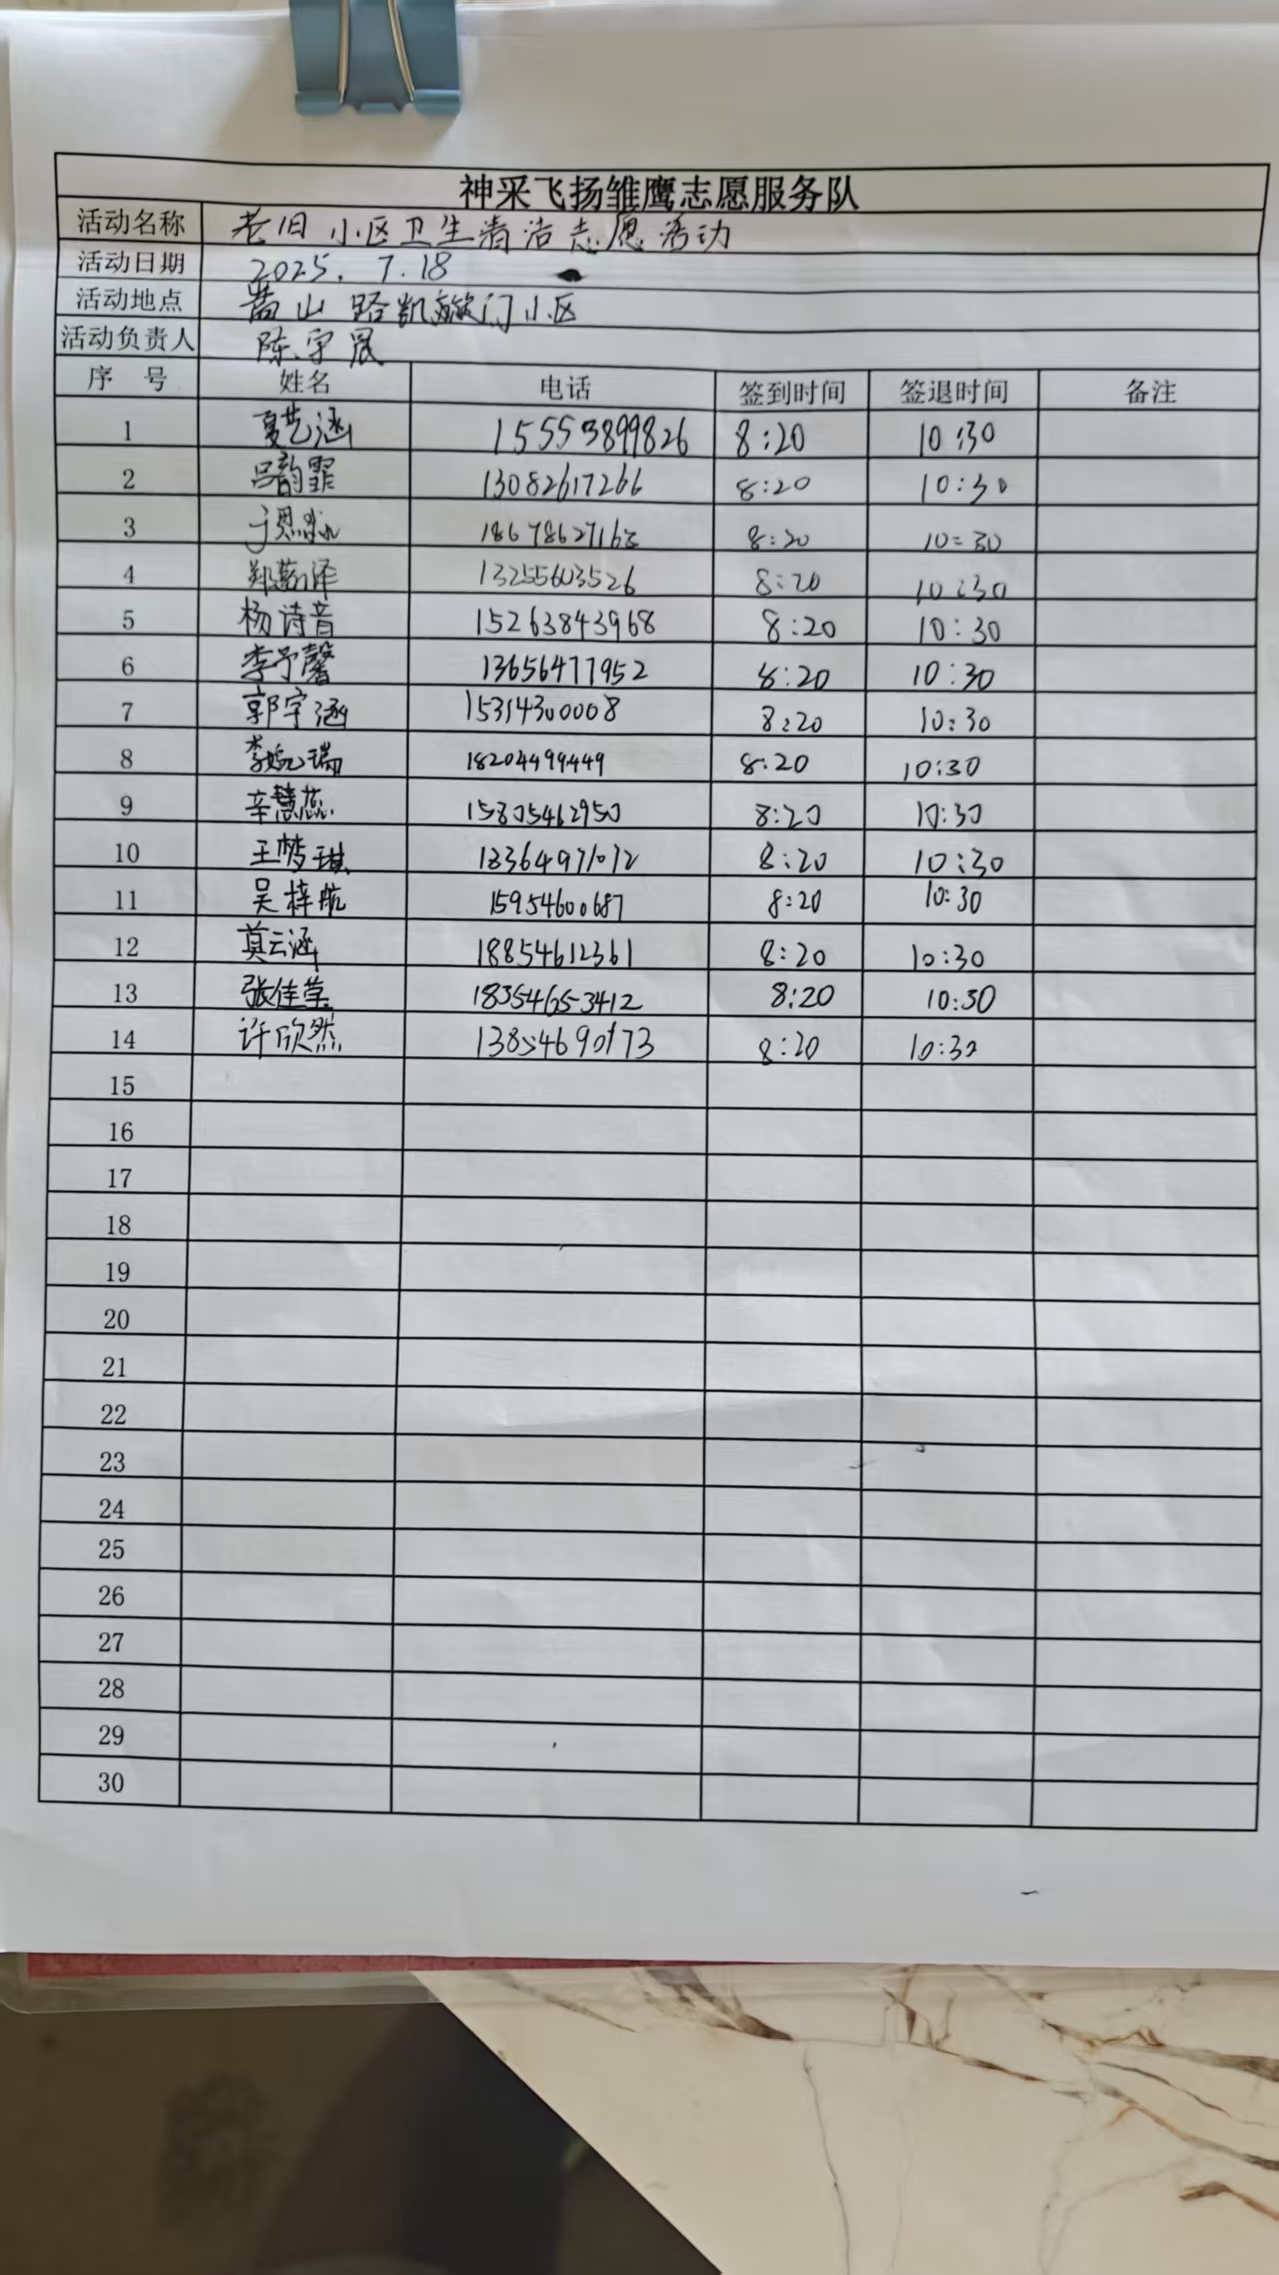 神采飞扬雏鹰志愿服务队
活动名称 老旧小区卫生清洁志愿活动
活动日期 2025.7.18
活动地点 嵩山路凯旋门小区
活动负责人 陈宇晟
序号 姓名 电话 签到时间 签退时间 备注
1 夏艺涵 15553899826 8:20 10:30
2 吕韵霏 13082617266 8:20 10:30
3 8:20 10:30
4 13255603526 8:20 10:30
5 杨诗音 15263843968 8:20 10:30
6 李予馨 13656477952 8:20 10:30
7 郭宇涵 15314300008 8:20 10:30
8 18204499449 8:20 10:30
9 辛慧蕊 15805462950 8:20 10:30
10 王梦琪 18364971072 8:20 10:30
11 吴梓航 15954600687 8:20 10:30
12 莫云涵 18854612361 8:20 10:30
13 18354653412 8:20 10:30
14 许欣然 13854690173 8:20 10:30
15
16
17
18
19
20
21
22
23
24
25
26
27
28
29
30